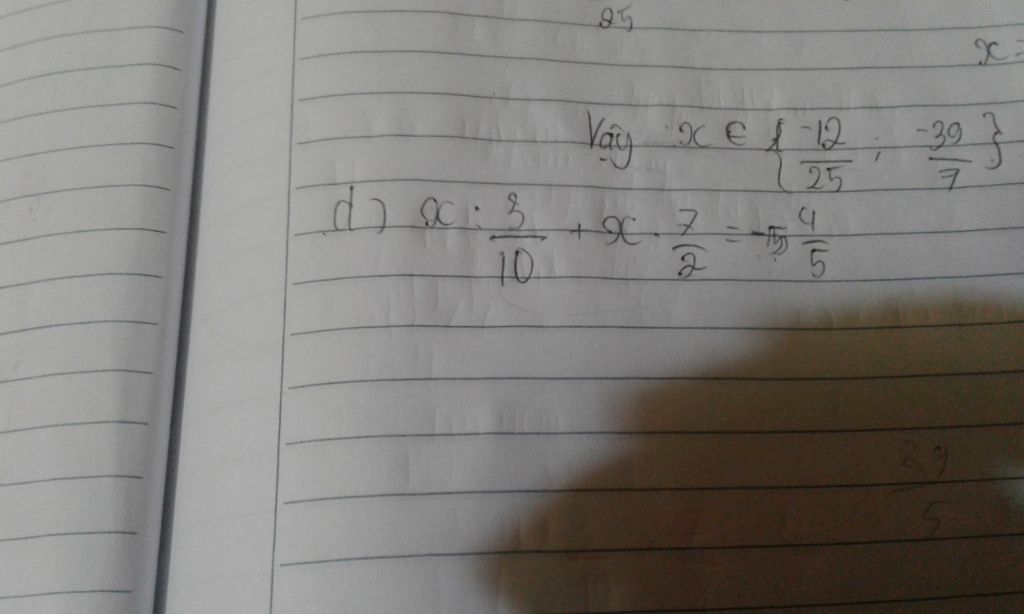 25
x =
Vậy x ∈ { -12/25 ; -39/7 }
d) x : 3/10 + x . 7/2 = - 4/5